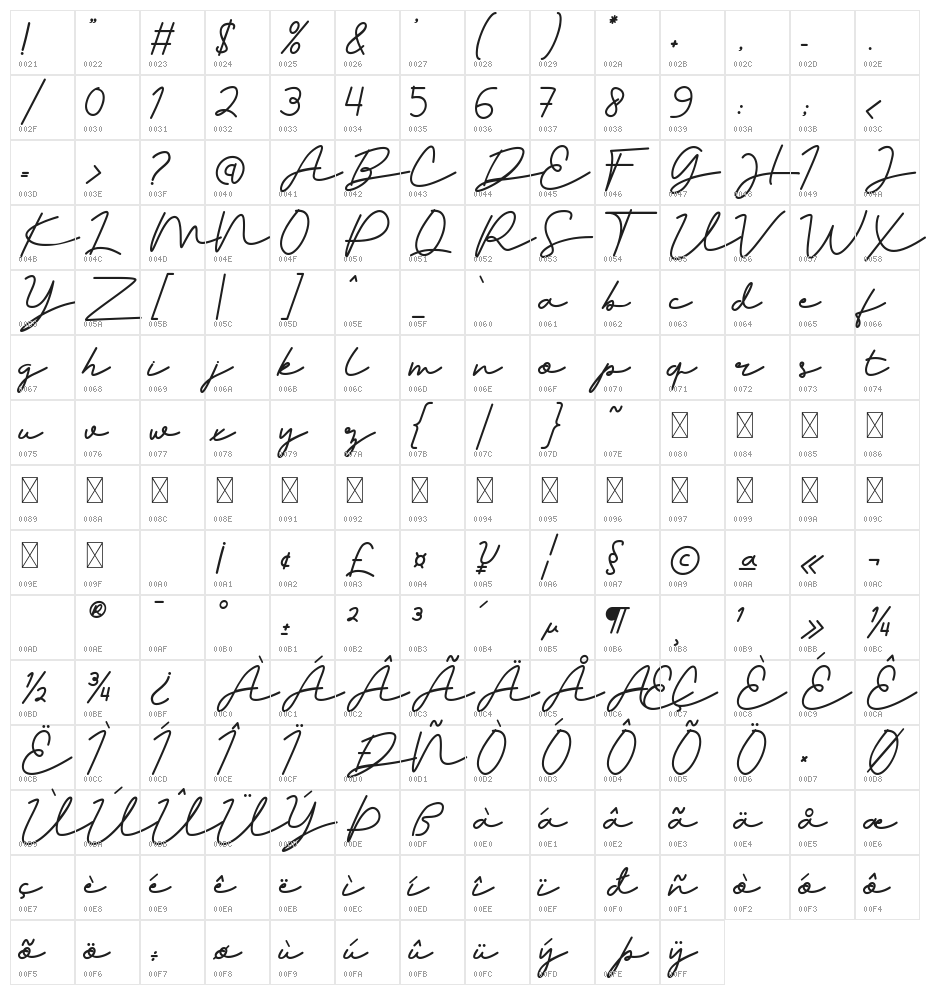 ! " # $ % & ' ( ) * + , - .
0021 0022 0023 0024 0025 0026 0027 0028 0029 002A 002B 002C 002D 002E
/ 0 1 2 3 4 5 6 7 8 9 : ; <
002F 0030 0031 0032 0033 0034 0035 0036 0037 0038 0039 003A 003B 003C
= > ? @ A B C D E F G H I J
003D 003E 003F 0040 0041 0042 0043 0044 0045 0046 0047 0048 0049 004A
K L M N O P Q R S T U V W X
004B 004C 004D 004E 004F 0050 0051 0052 0053 0054 0055 0056 0057 0058
Y Z [ \ ] ^ _ ` a b c d e f
0059 005A 005B 005C 005D 005E 005F 0060 0061 0062 0063 0064 0065 0066
g h i j k l m n o p q r s t
0067 0068 0069 006A 006B 006C 006D 006E 006F 0070 0071 0072 0073 0074
u v w x y z { | } ~
0075 0076 0077 0078 0079 007A 007B 007C 007D 007E 0080 0084 0085 0086
0089 008A 008C 008E 0091 0092 0093 0094 0095 0096 0097 0099 009A 009C
¡ ¢ £ ¤ ¥ ¦ § © ª « ¬
009E 009F 00A0 00A1 00A2 00A3 00A4 00A5 00A6 00A7 00A9 00AA 00AB 00AC
® ¯ ° ± ² ³ ´ µ ¶ ¸ ¹ » ¼
00AD 00AE 00AF 00B0 00B1 00B2 00B3 00B4 00B5 00B6 00B8 00B9 00BB 00BC
½ ¾ ¿ À Á Â Ã Ä Å Æ Ç È É Ê
00BD 00BE 00BF 00C0 00C1 00C2 00C3 00C4 00C5 00C6 00C7 00C8 00C9 00CA
Ë Ì Í Î Ï Ð Ñ Ò Ó Ô Õ Ö × Ø
00CB 00CC 00CD 00CE 00CF 00D0 00D1 00D2 00D3 00D4 00D5 00D6 00D7 00D8
Ù Ú Û Ü Ý Þ ß à á â ã ä å æ
00D9 00DA 00DB 00DC 00DD 00DE 00DF 00E0 00E1 00E2 00E3 00E4 00E5 00E6
ç è é ê ë ì í î ï ð ñ ò ó ô
00E7 00E8 00E9 00EA 00EB 00EC 00ED 00EE 00EF 00F0 00F1 00F2 00F3 00F4
õ ö ÷ ø ù ú û ü ý þ ÿ
00F5 00F6 00F7 00F8 00F9 00FA 00FB 00FC 00FD 00FE 00FF